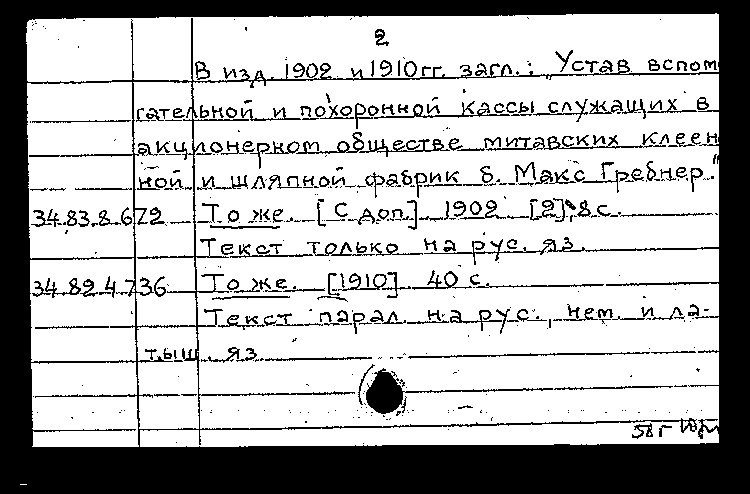 2
В изд. 1902 и 1910 гг. загл.: "Устав вспом
гательной и похоронной кассы служащих в
акционерном обществе митавских клеен
ной и шляпной фабрик б. Макс Гребнер."
34.83.8.672 То же. [С доп.]. 1902. [2], 8 с.
Текст только на рус. яз.
34.82.4.736 То же. [1910]. 40 с.
Текст парал. на рус., нем. и ла-
тыш. яз
58 г